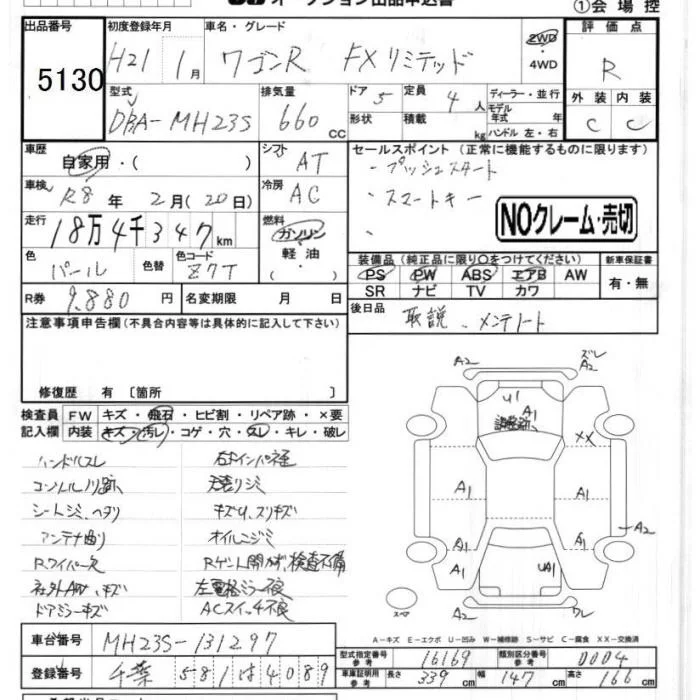 オークション出品申込書
①会場控
出品番号 5130
初度登録年月 H21 1月
車名・グレード ワゴンR FXリミテッド
2WD ・4WD
評価点 R
外装 内装
C C
型式 DBA-MH23S
排気量 660 cc
ドア 5 定員 4人
形状 積載 kg
ディーラー・並行
モデル年式 年式
ハンドル 左・右
車歴 自家用・( )
シフト AT
車検 R8年 2月(20日)
冷房 AC
走行 18万4千347km
燃料 ガソリン 軽油 ・( )
色 パール 色替 色コード Z7T
R券 9,880円 名変期限 月 日
セールスポイント (正常に機能するものに限ります)
・プッシュスタート
・スマートキー
NOクレーム・売切
装備品 (純正品に限り○をつけてください) 新車保証書
PS PW ABS エアB AW 有・無
SR ナビ TV カワ
後日品 取説、メンテノート
注意事項申告欄(不具合内容等は具体的に記入して下さい)
修復歴 有 〔箇所 〕
検査員記入欄 FW キズ・飛石・ヒビ割・リペア跡・×要
内装 キズ・汚レ・コゲ・穴・スレ・キレ・破レ
ハンドルスレ
コンソール ノリ跡
シートシミ、ヘタリ
アンテナ曲り
Rワイパー欠
社外AW、キズ
ドアミラーキズ
右Fインパネ
天張リジミ
キズU、スリキズ
オイルニジミ
Rゲート開カズ、検査不備
左電格ミラー不良
ACスイッチ不良
A2 ズレ
A2
U1
A1
調整跡
XX
A1 A1
A1 A1 A2
A1 UA1 A1
スペア A2 ワレ
A-キズ E-エクボ U-凹み W-補修跡 S-サビ C-腐食 XX-交換済
車台番号 MH23S-131297
登録番号 千葉 581 は 4089
型式指定番号 参考 16169 類別区分番号 参考 0004
車庫証明用 参考 長さ 339cm 幅 147cm 高さ 166cm